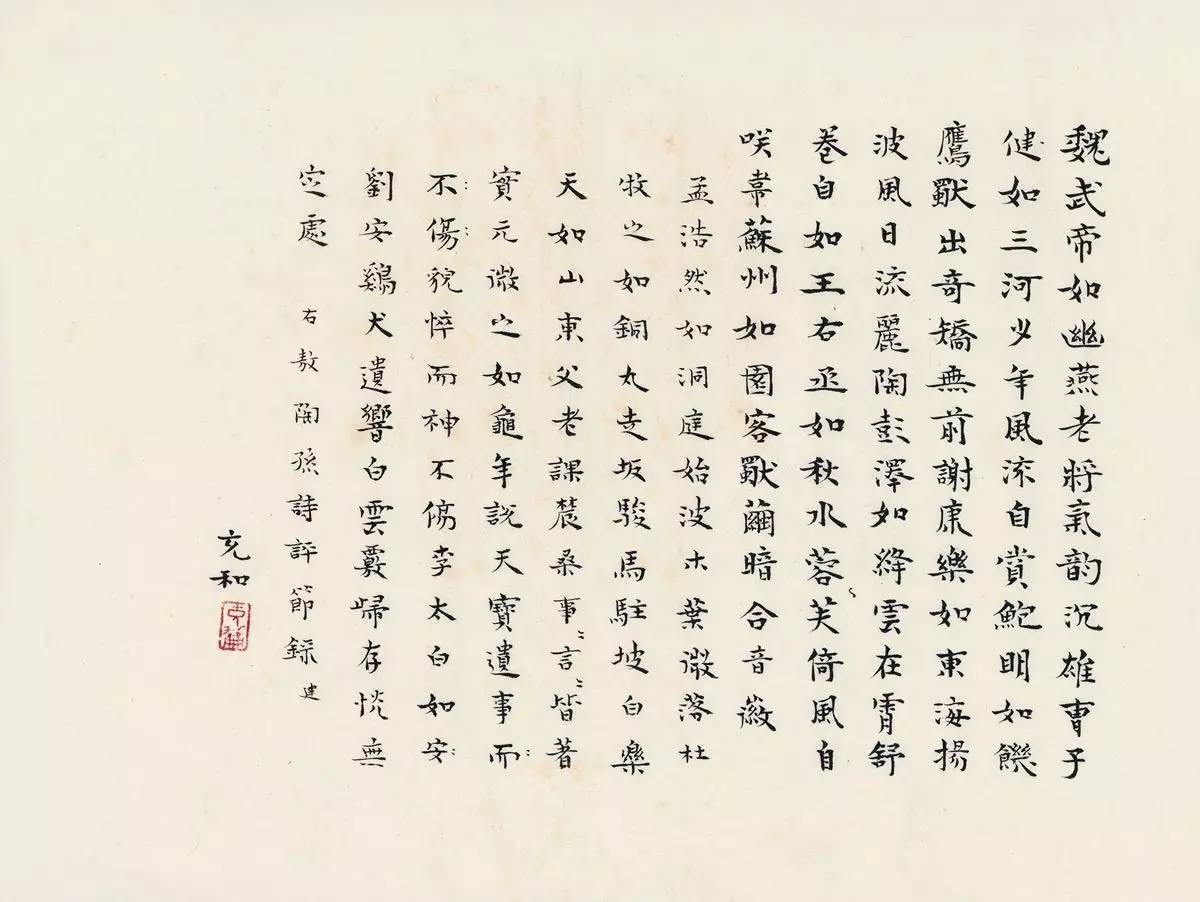 魏武帝如幽燕老將氣韵沉雄曹子
健如三河少年風流自賞鮑明如饑
鷹獸出奇矯無前謝康樂如東海揚
波風日流麗陶彭澤如絳雲在霄舒
卷自如王右丞如秋水蓉芙倚風自
咲韋蘇州如園客獸繭暗合音徽
孟浩然如洞庭始波木葉微落杜
牧之如銅丸走坂駿馬駐坡白樂
天如山東父老課農桑事〻言〻皆著
實元微之如龜年說天寶遺事而
不傷貌悴而神不傷李太白如安
劉安鷄犬遺響白雲覈歸存恍無
定處 右敖陶孫詩評節錄 建
充和